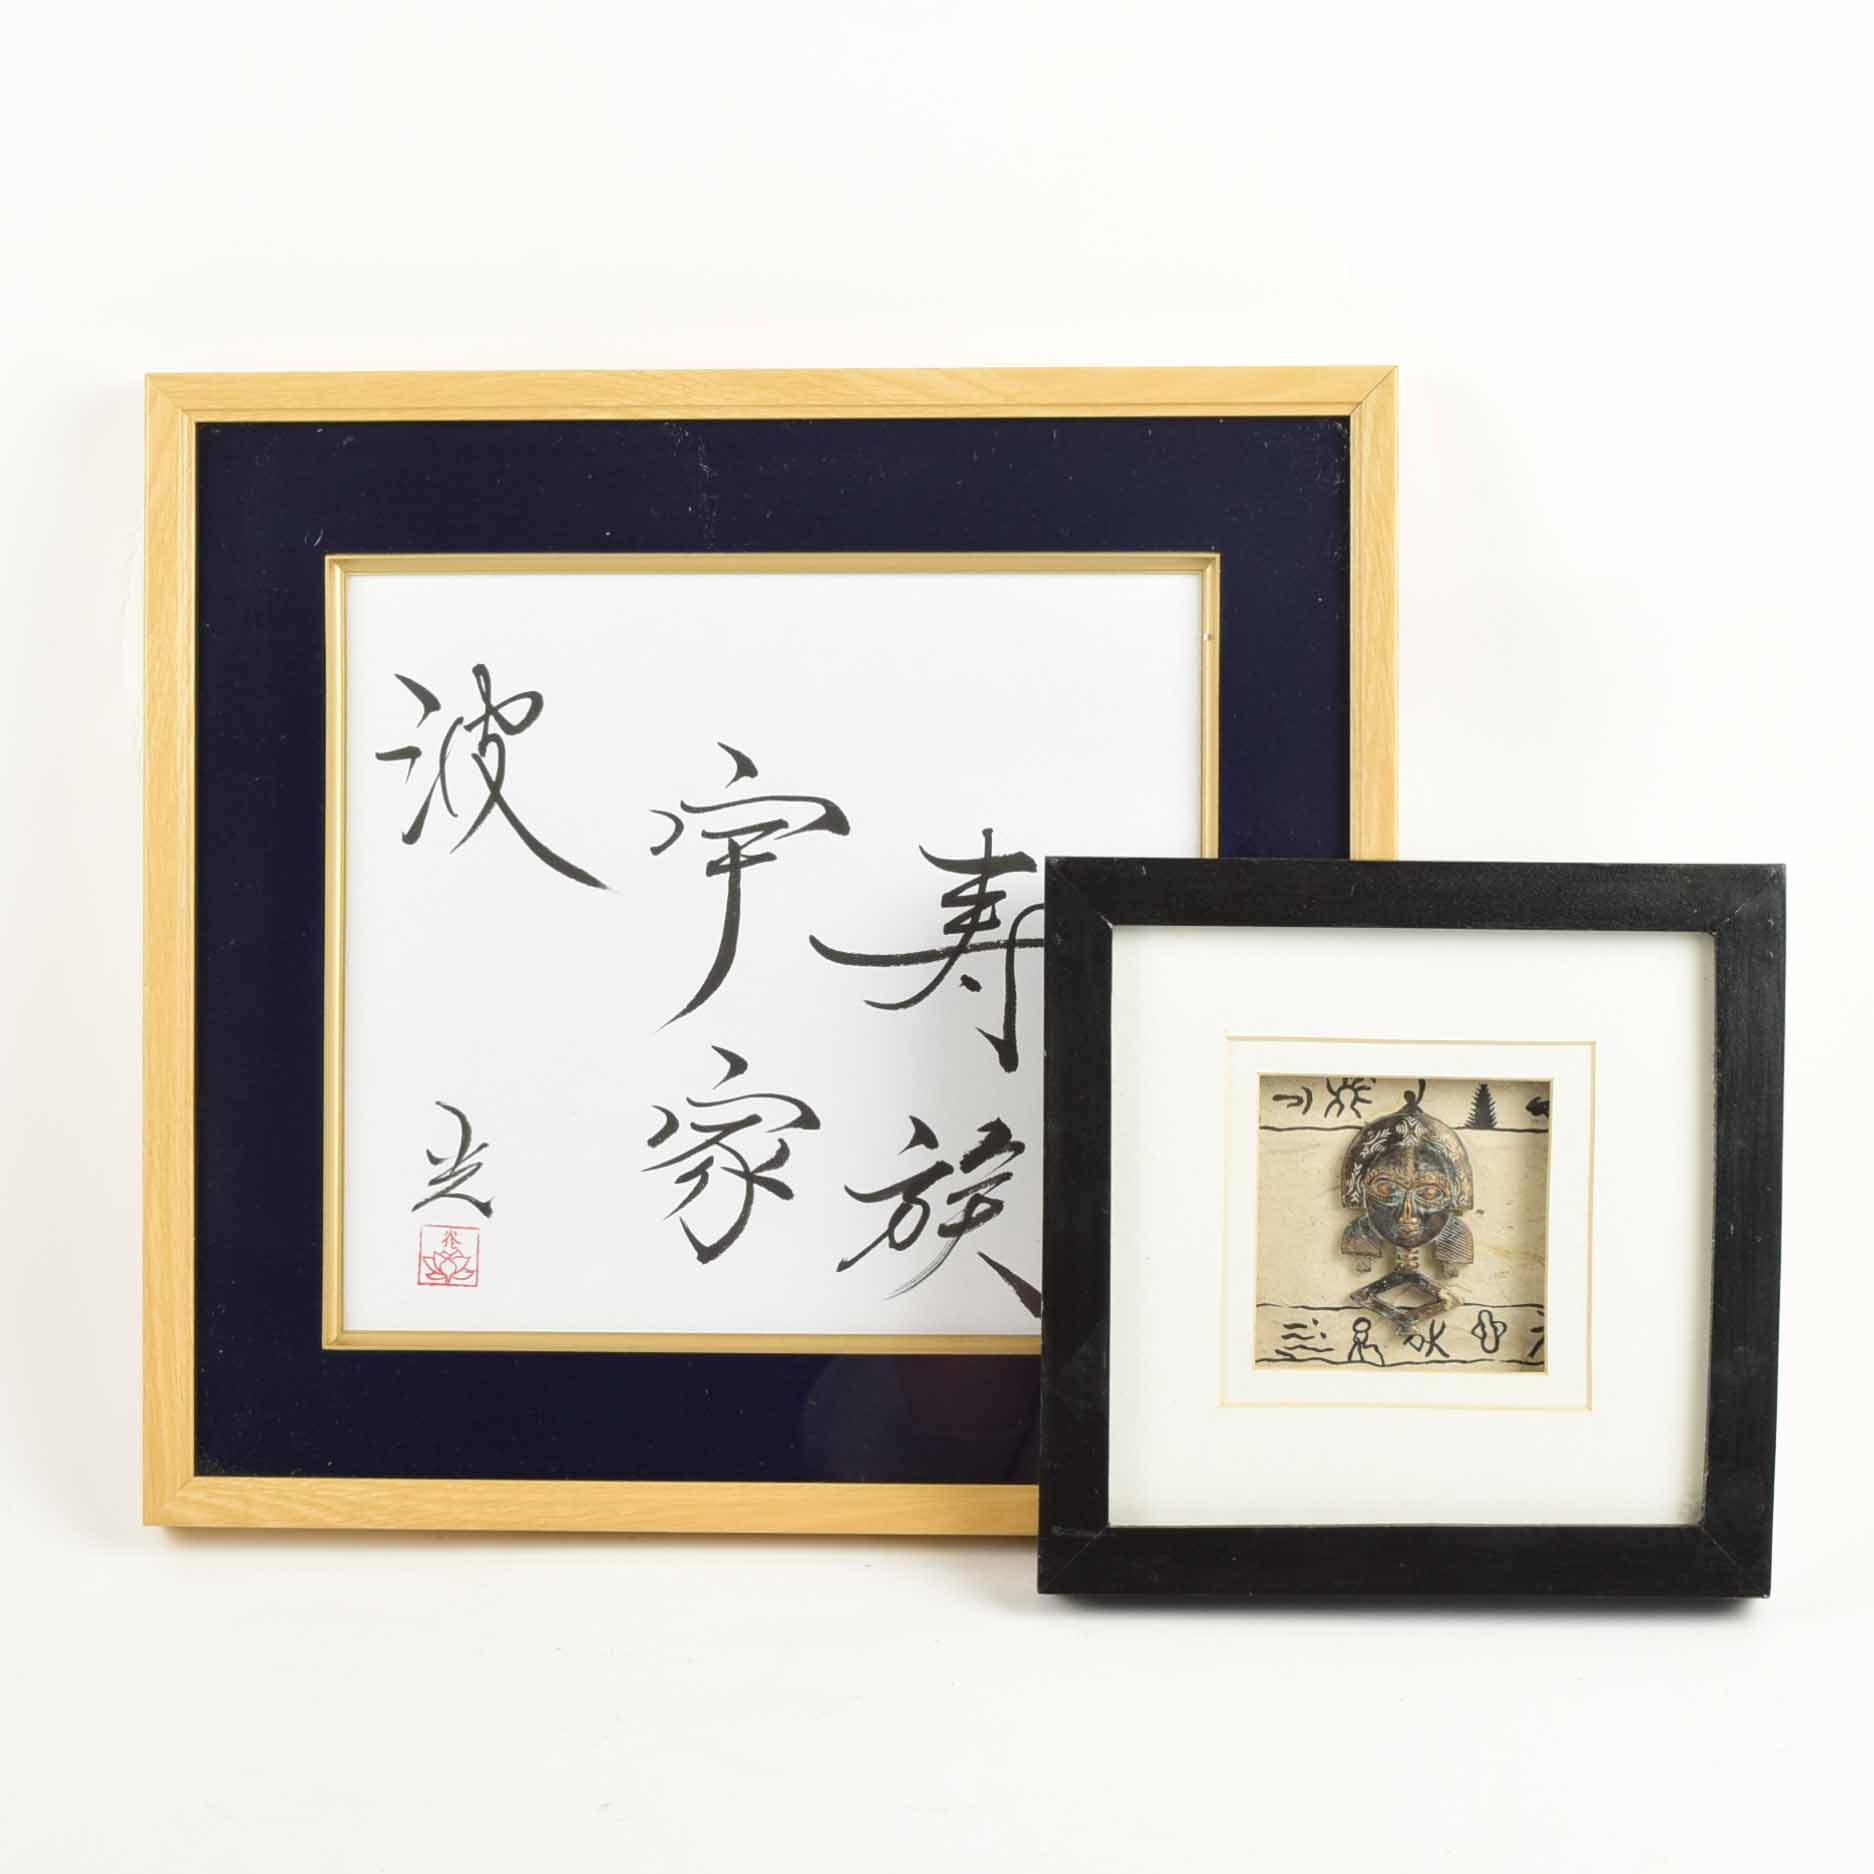 寿宇波
族家
光